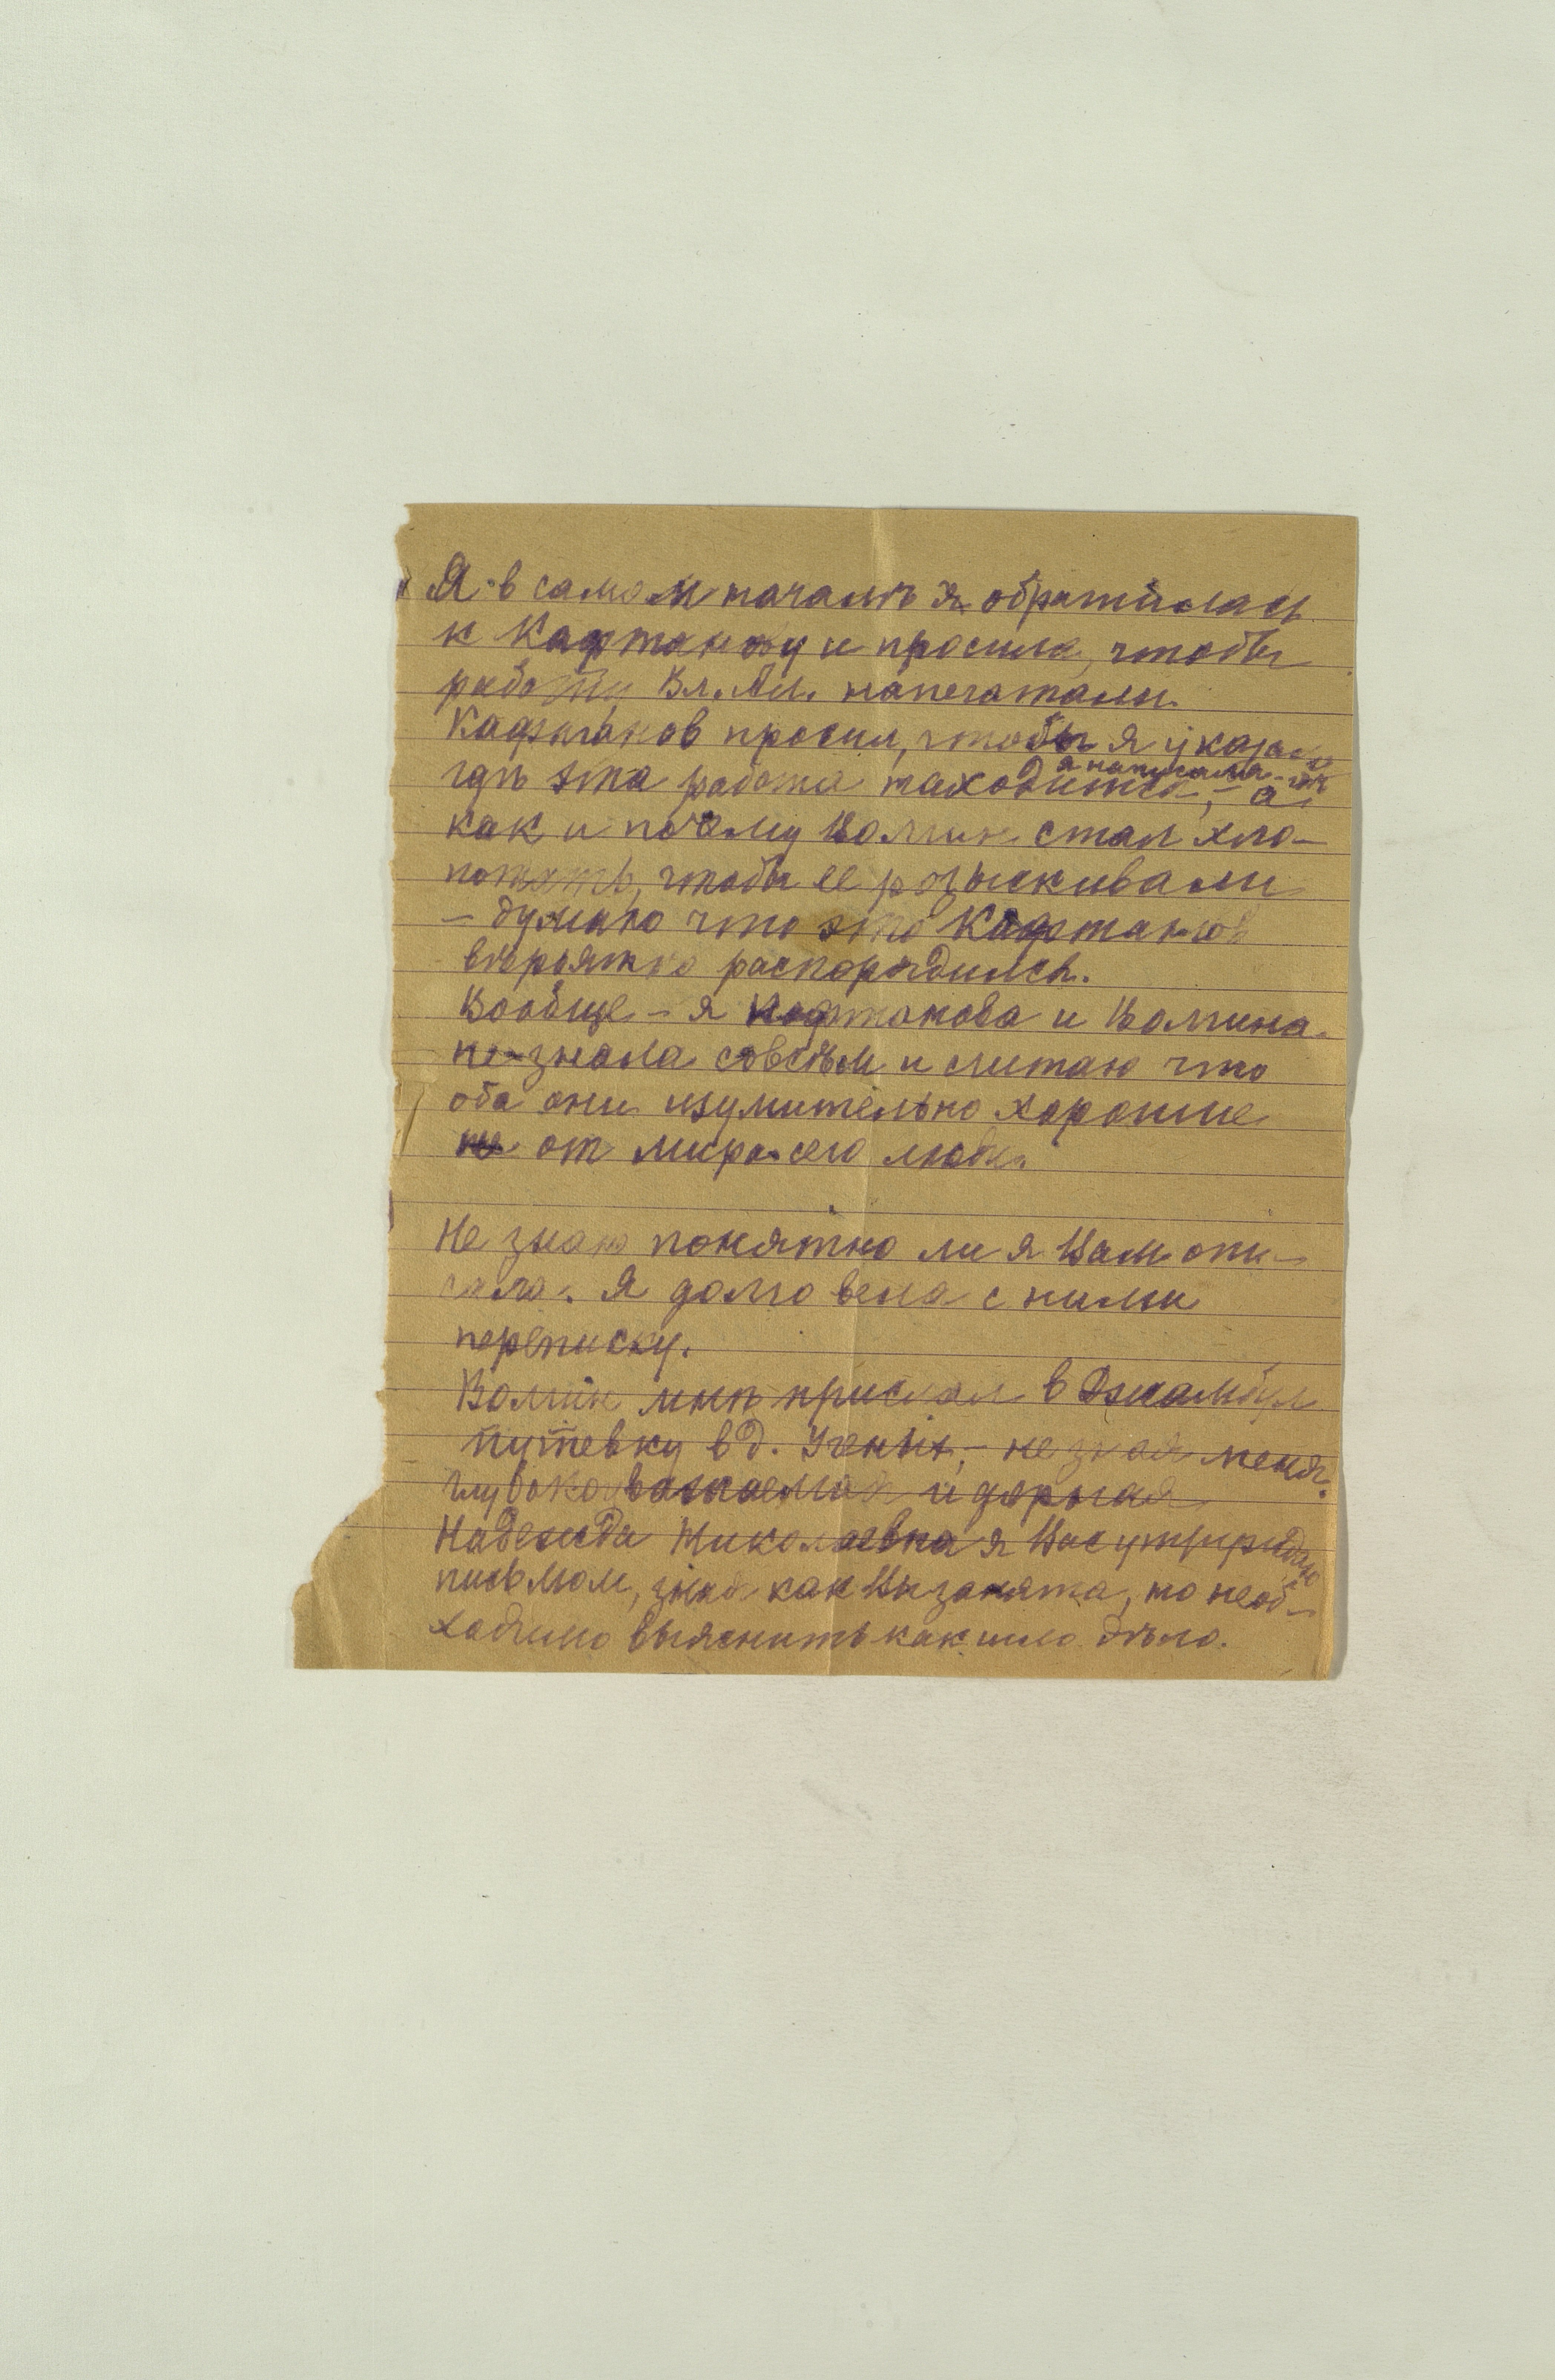 Я в самом началѣ я обратилась
к Кафтанову и просила, чтобы
работу Вл. Ал. напечатали.
Кафтанов просил, чтобы я указала
гдѣ эта работа находится, – а
я написала
как и почему Волгин стал хло-
потать, чтобы ее розыскивали
– думаю что это Кафтанов
вѣроятно распорядился.
Вообще – я Кафтанова и Волгина
не знала совсѣм и считаю что
оба они изумительно хорошие
не от мира сего люди.
Не знаю понятно ли я Вам опи-
сала. Я долго вела с ними
переписку.
Волгин мнѣ прислал в Джамбул
путевку в д. Ученых, – не зная меня.
Глубокоуважаемая и дорогая
Надежда Николаевна я Вас утруждаю
письмом, зная как Вы заняты, но необ-
ходимо выяснить как шло дѣло.